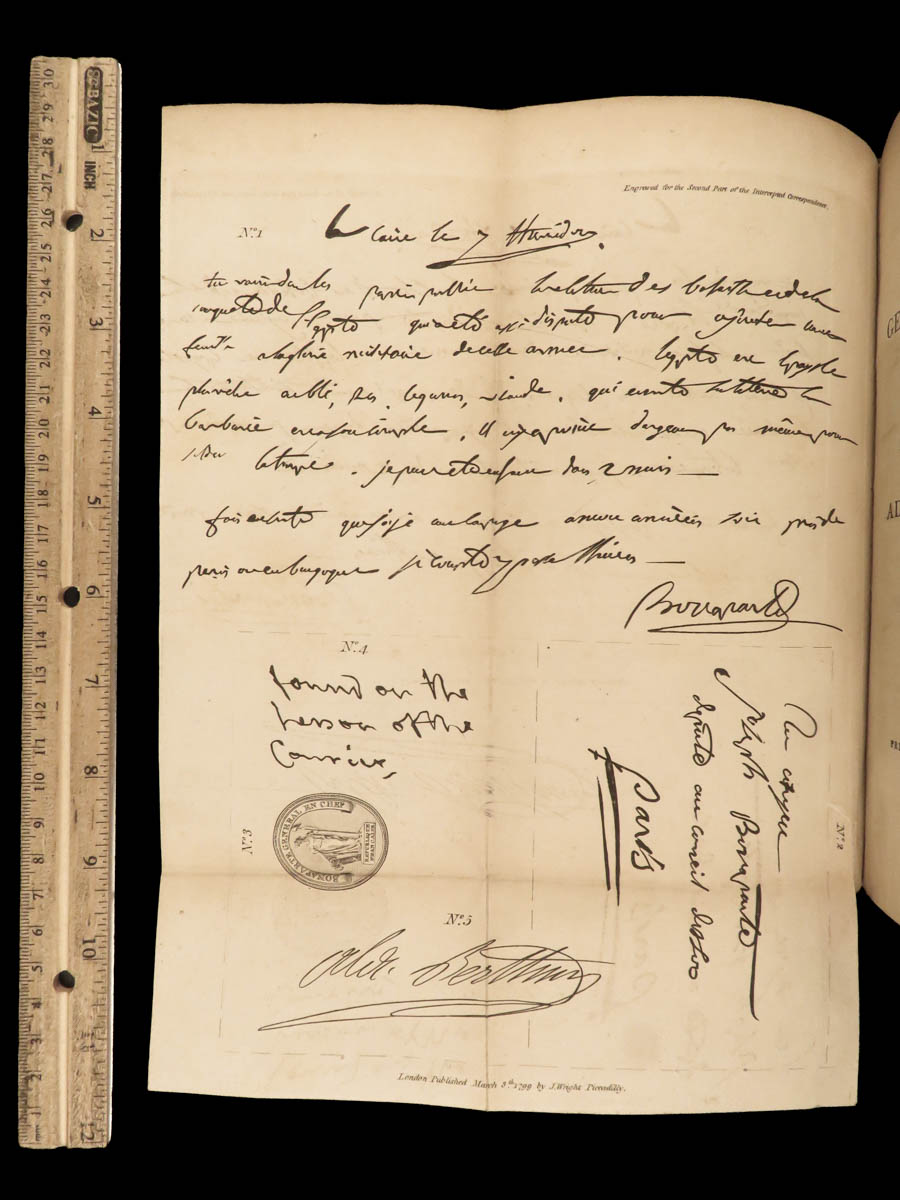 Engraved for the Second Part of the Intercepted Correspondence.
Nº 1
Le Caire le 7 Thermidor.
tu verra dans les papiers public la relation des batailles et de la
conquete de l'Egypte qui a eté assé disputé pour ajouter une
feuille a la gloire militaire de cette armee. l'egypte est le pays le
plus riche en blé, ris, legumes, viande, qui existe sur la terre la
barbarie est a son comble. Il n'y a point d'argent pas même pour
la troupe. je pense etre en france dans 2 mois —
fais ensorte que j'aie une campagne a mon arrivée soit près de
paris ou en bourgogne je compte y passer l'hiver —
Bonaparte
Nº 4
found on the
person of the
Courier,
Nº 2
Au citoyen
Joseph Bonaparte
deputé au conseil des 500
Paris
Nº 3
BONAPARTE GENERAL EN CHEF
REPUBLIQUE
FRANCAISE
Nº 5
Alex. Berthier
London Published March 8th 1799 by J. Wright Piccadilly.
BAZIC
1
INCH
2
3
4
5
6
7
8
9
10
12
30
29
28
27
26
25
24
23
22
21
20
19
18
17
16
15
14
13
12
11
10
9
8
7
6
5
4
3
2
1
GE
AD